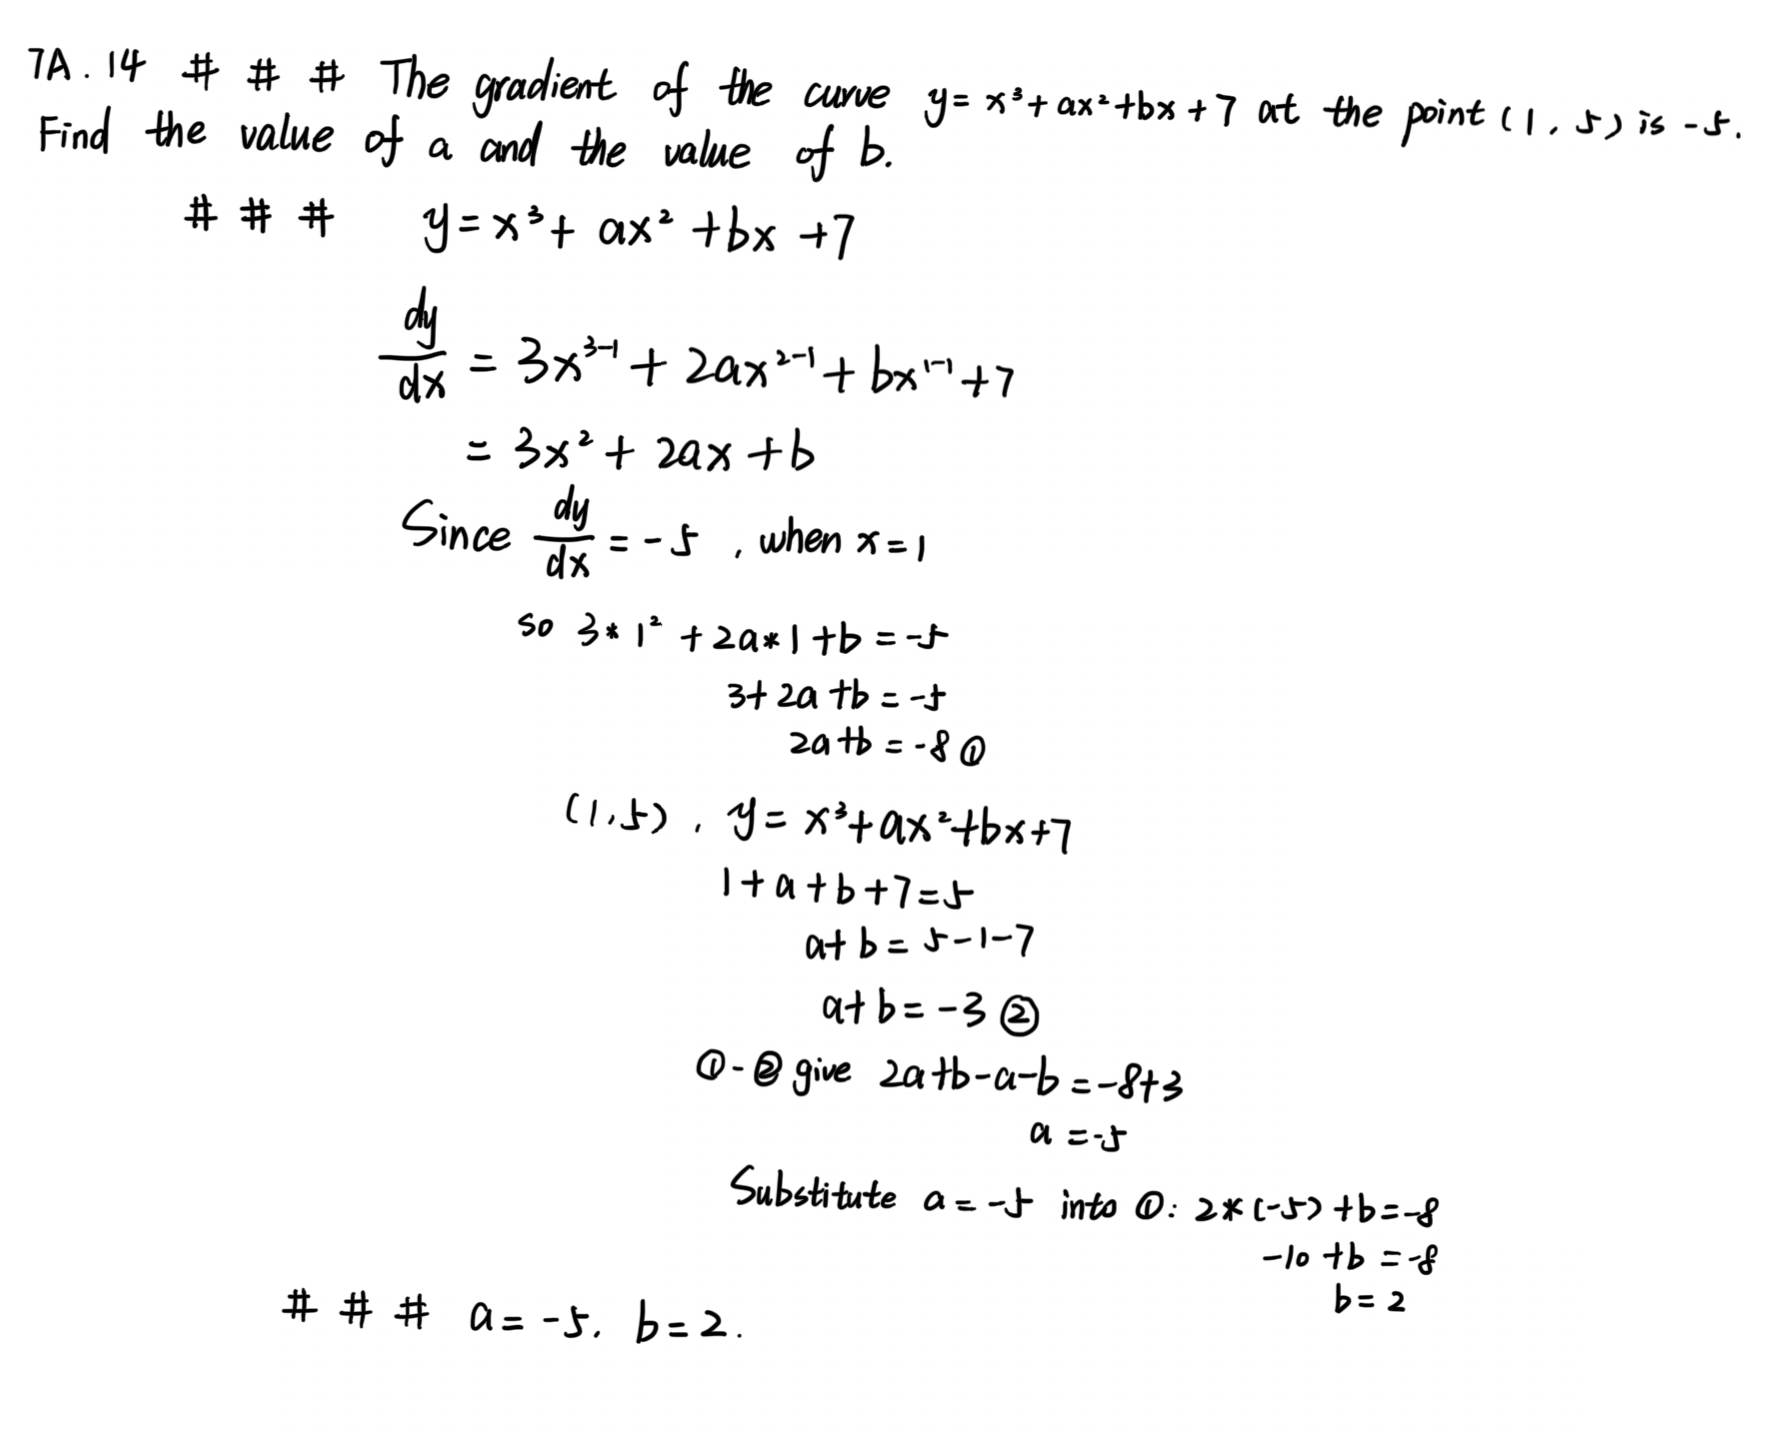 7A.14 # # # The gradient of the curve y = x³ + ax² + bx + 7 at the point (1, 5) is -5.
Find the value of a and the value of b.
# # # y = x³ + ax² + bx + 7
dy/dx = 3x³⁻¹ + 2ax²⁻¹ + bx¹⁻¹ + 7
= 3x² + 2ax + b
Since dy/dx = -5, when x = 1
so 3*1² + 2a*1 + b = -5
3 + 2a + b = -5
2a + b = -8 ①
(1, 5), y = x³ + ax² + bx + 7
1 + a + b + 7 = 5
a + b = 5 - 1 - 7
a + b = -3 ②
① - ② give 2a + b - a - b = -8 + 3
a = -5
Substitute a = -5 into ①: 2*(-5) + b = -8
-10 + b = -8
b = 2
# # # a = -5. b = 2.